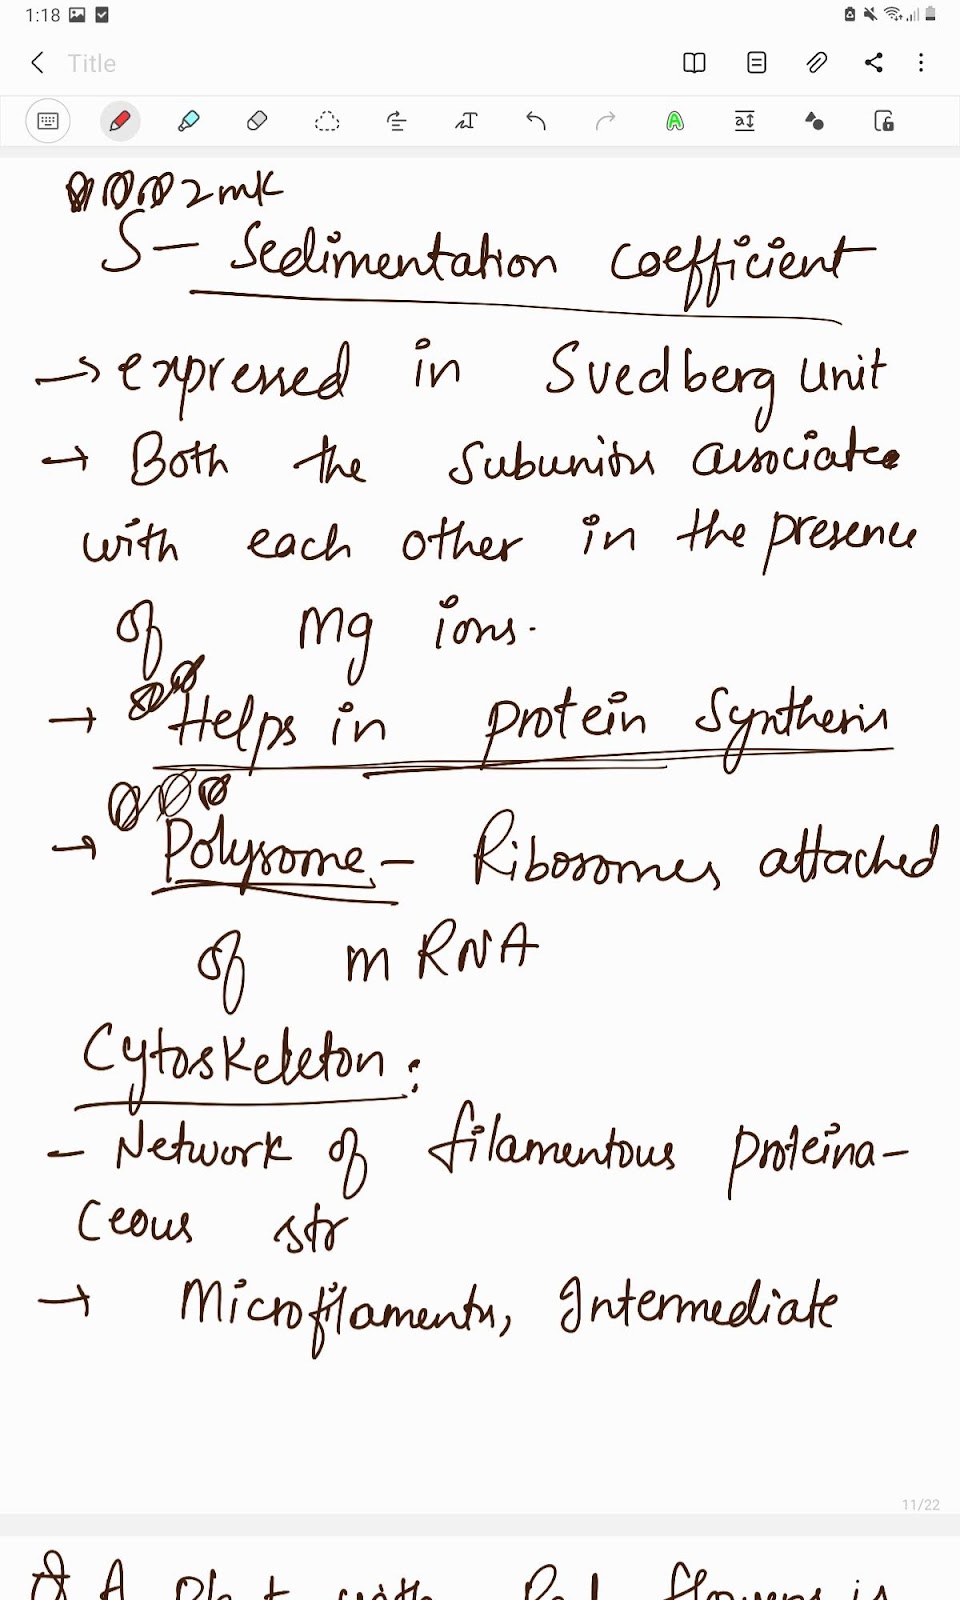 1:18
Title
2mk
S- Sedimentation coefficient
→ expressed in Svedberg unit
→ Both the subunits associate
with each other in the presence
of Mg ions.
→ Helps in protein synthesis
→ Polysome - Ribosomes attached
of mRNA
Cytoskeleton:
- Network of filamentous proteina-
ceous str
→ Microfilaments, Intermediate
11/22
A with Red flowers is